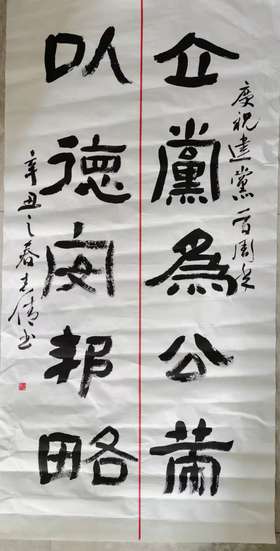 慶祝建黨百周年
立黨為公
以德邦略
辛丑之春书